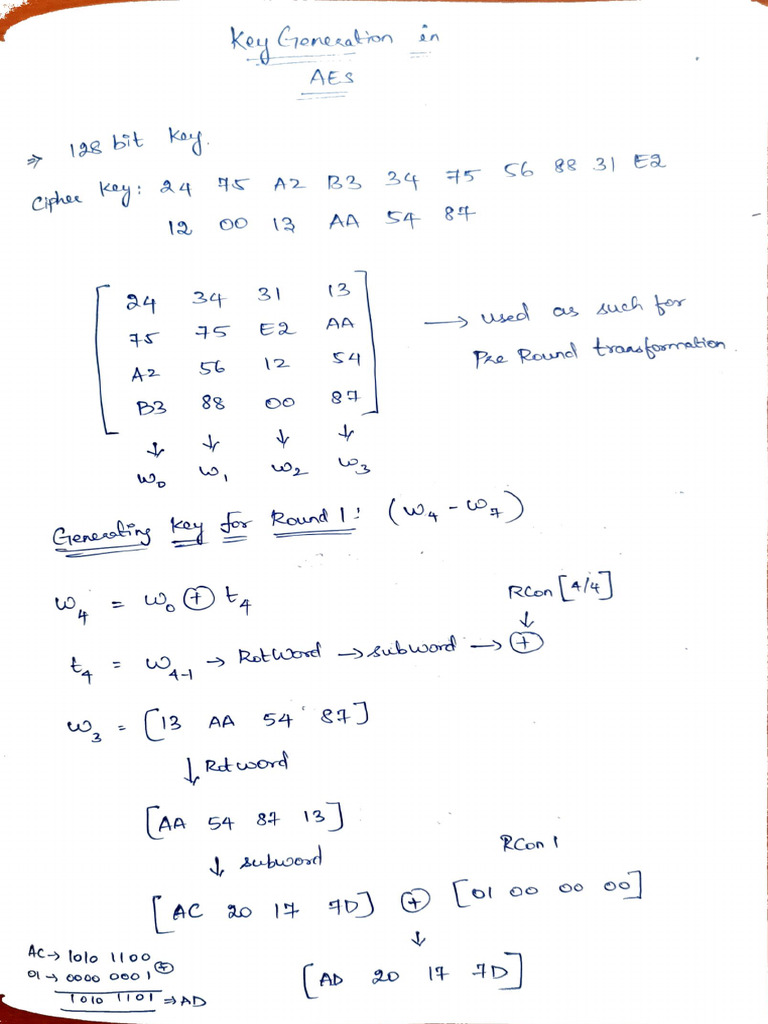 Key Generation in
AES
⇒ 128 bit Key.
Cipher Key: 24 75 A2 B3 34 75 56 88 31 E2
12 00 13 AA 54 87
24 34 31 13
75 75 E2 AA → used as such for
A2 56 12 54 Pre Round transformation.
B3 88 00 87
↓ ↓ ↓ ↓
w0 w1 w2 w3
Generating Key for Round 1: (w4 - w7)
w4 = w0 ⊕ t4 RCon [4/4]
↓
t4 = w4-1 → RotWord → subword → ⊕
w3 = [13 AA 54 87]
↓ Rotword
[AA 54 87 13]
↓ subword RCon 1
[AC 20 17 7D] ⊕ [01 00 00 00]
↓
[AD 20 17 7D]
AC → 1010 1100
01 → 0000 0001 ⊕
1010 1101 ⇒ AD